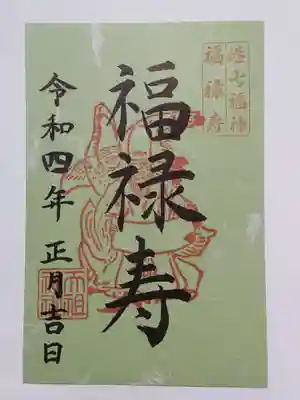 七福神
福禄寿
福禄寿
令和四年 正月吉日